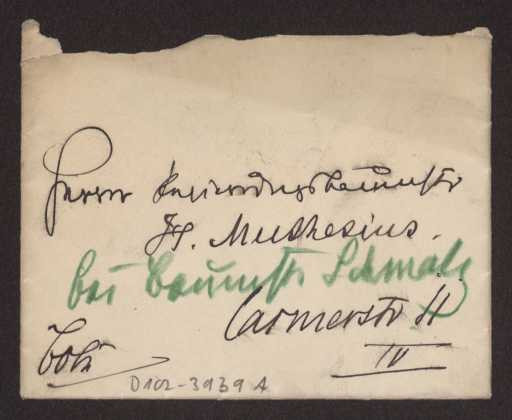 Herrn Regierungsbaumstr
H. Muthesius.
bei Baumstr Schmalz
Carmerstr
IV
D102-3939 A